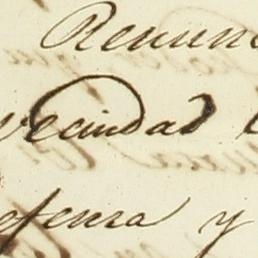 Renun
vecindad
efensa y